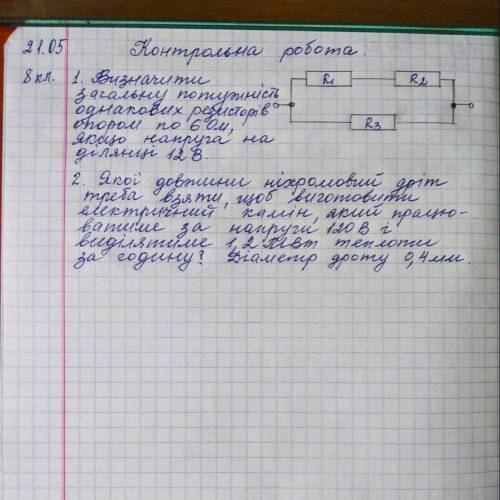 21.05 Контрольна робота.
8 кл. 1. Визначити
загальну потужність
однакових резисторів
опором по 6 Ом,
якщо напруга на
ділянці 12 В.
R1 R2
R3
2. Якої довжини ніхромовий дріт
треба взяти, щоб виготовити
електричний камін, який працю-
ватиме за напруги 120 В і
виділятиме 1,2 МВт теплоти
за годину? Діаметр дроту 0,4 мм.